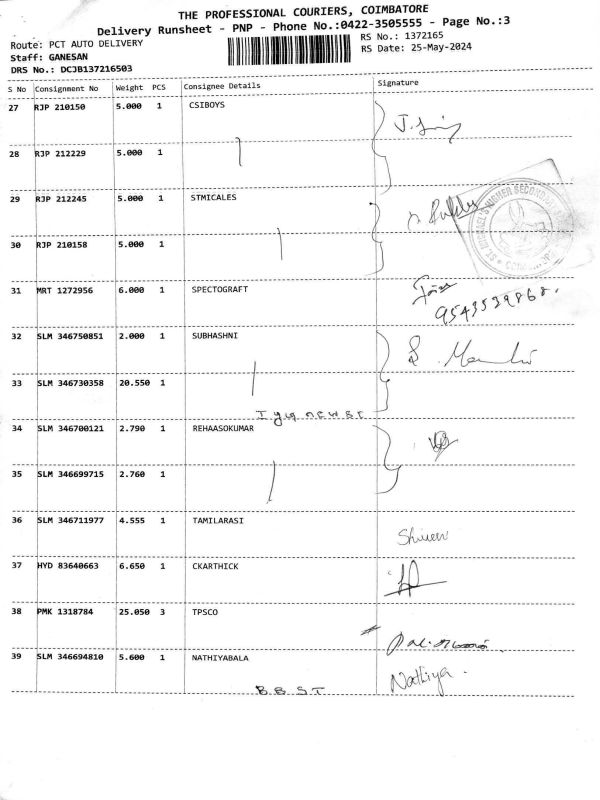 THE PROFESSIONAL COURIERS, COIMBATORE
Delivery Runsheet - PNP - Phone No.:0422-3505555 - Page No.:3
Route: PCT AUTO DELIVERY RS No.: 1372165
Staff: GANESAN RS Date: 25-May-2024
DRS No.: DCJB137216503
S No Consignment No Weight PCS Consignee Details Signature
27 RJP 210150 5.000 1 CSIBOYS
28 RJP 212229 5.000 1
29 RJP 212245 5.000 1 STMICALES
30 RJP 210158 5.000 1
31 MRT 1272956 6.000 1 SPECTOGRAFT
32 SLM 346750851 2.000 1 SUBHASHNI
33 SLM 346730358 20.550 1
34 SLM 346700121 2.790 1 REHAASOKUMAR
35 SLM 346699715 2.760 1
36 SLM 346711977 4.555 1 TAMILARASI
37 HYD 83640663 6.650 1 CKARTHICK
38 PMK 1318784 25.050 3 TPSCO
39 SLM 346694810 5.600 1 NATHIYABALA Nathiya.
B.B S T